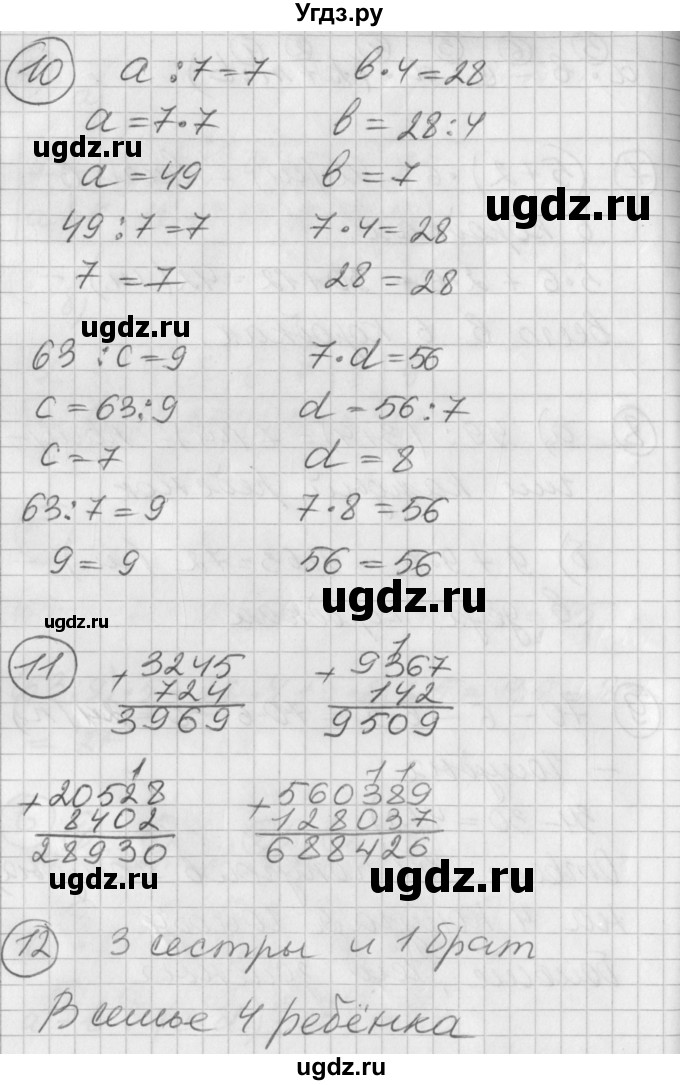 Угдз.ру
10 a : 7 = 7 b · 4 = 28
a = 7 · 7 b = 28 : 4
ugdz.ru
a = 49 b = 7
ugdz.ru
49 : 7 = 7 7 · 4 = 28
7 = 7 28 = 28
ugdz.ru
63 : c = 9 7 · d = 56
c = 63 : 9 d = 56 : 7
c = 7 d = 8
63 : 7 = 9 7 · 8 = 56
9 = 9 56 = 56
ugdz.ru
ugdz.ru
1
11 + 3245 + 9367
724 142
3969 9509
1 11
+ 20528 + 560389
8402 128037
28930 688426
ugdz.ru
ugdz.ru
12 3 сестры и 1 брат
В семье 4 ребёнка
ugdz.ru